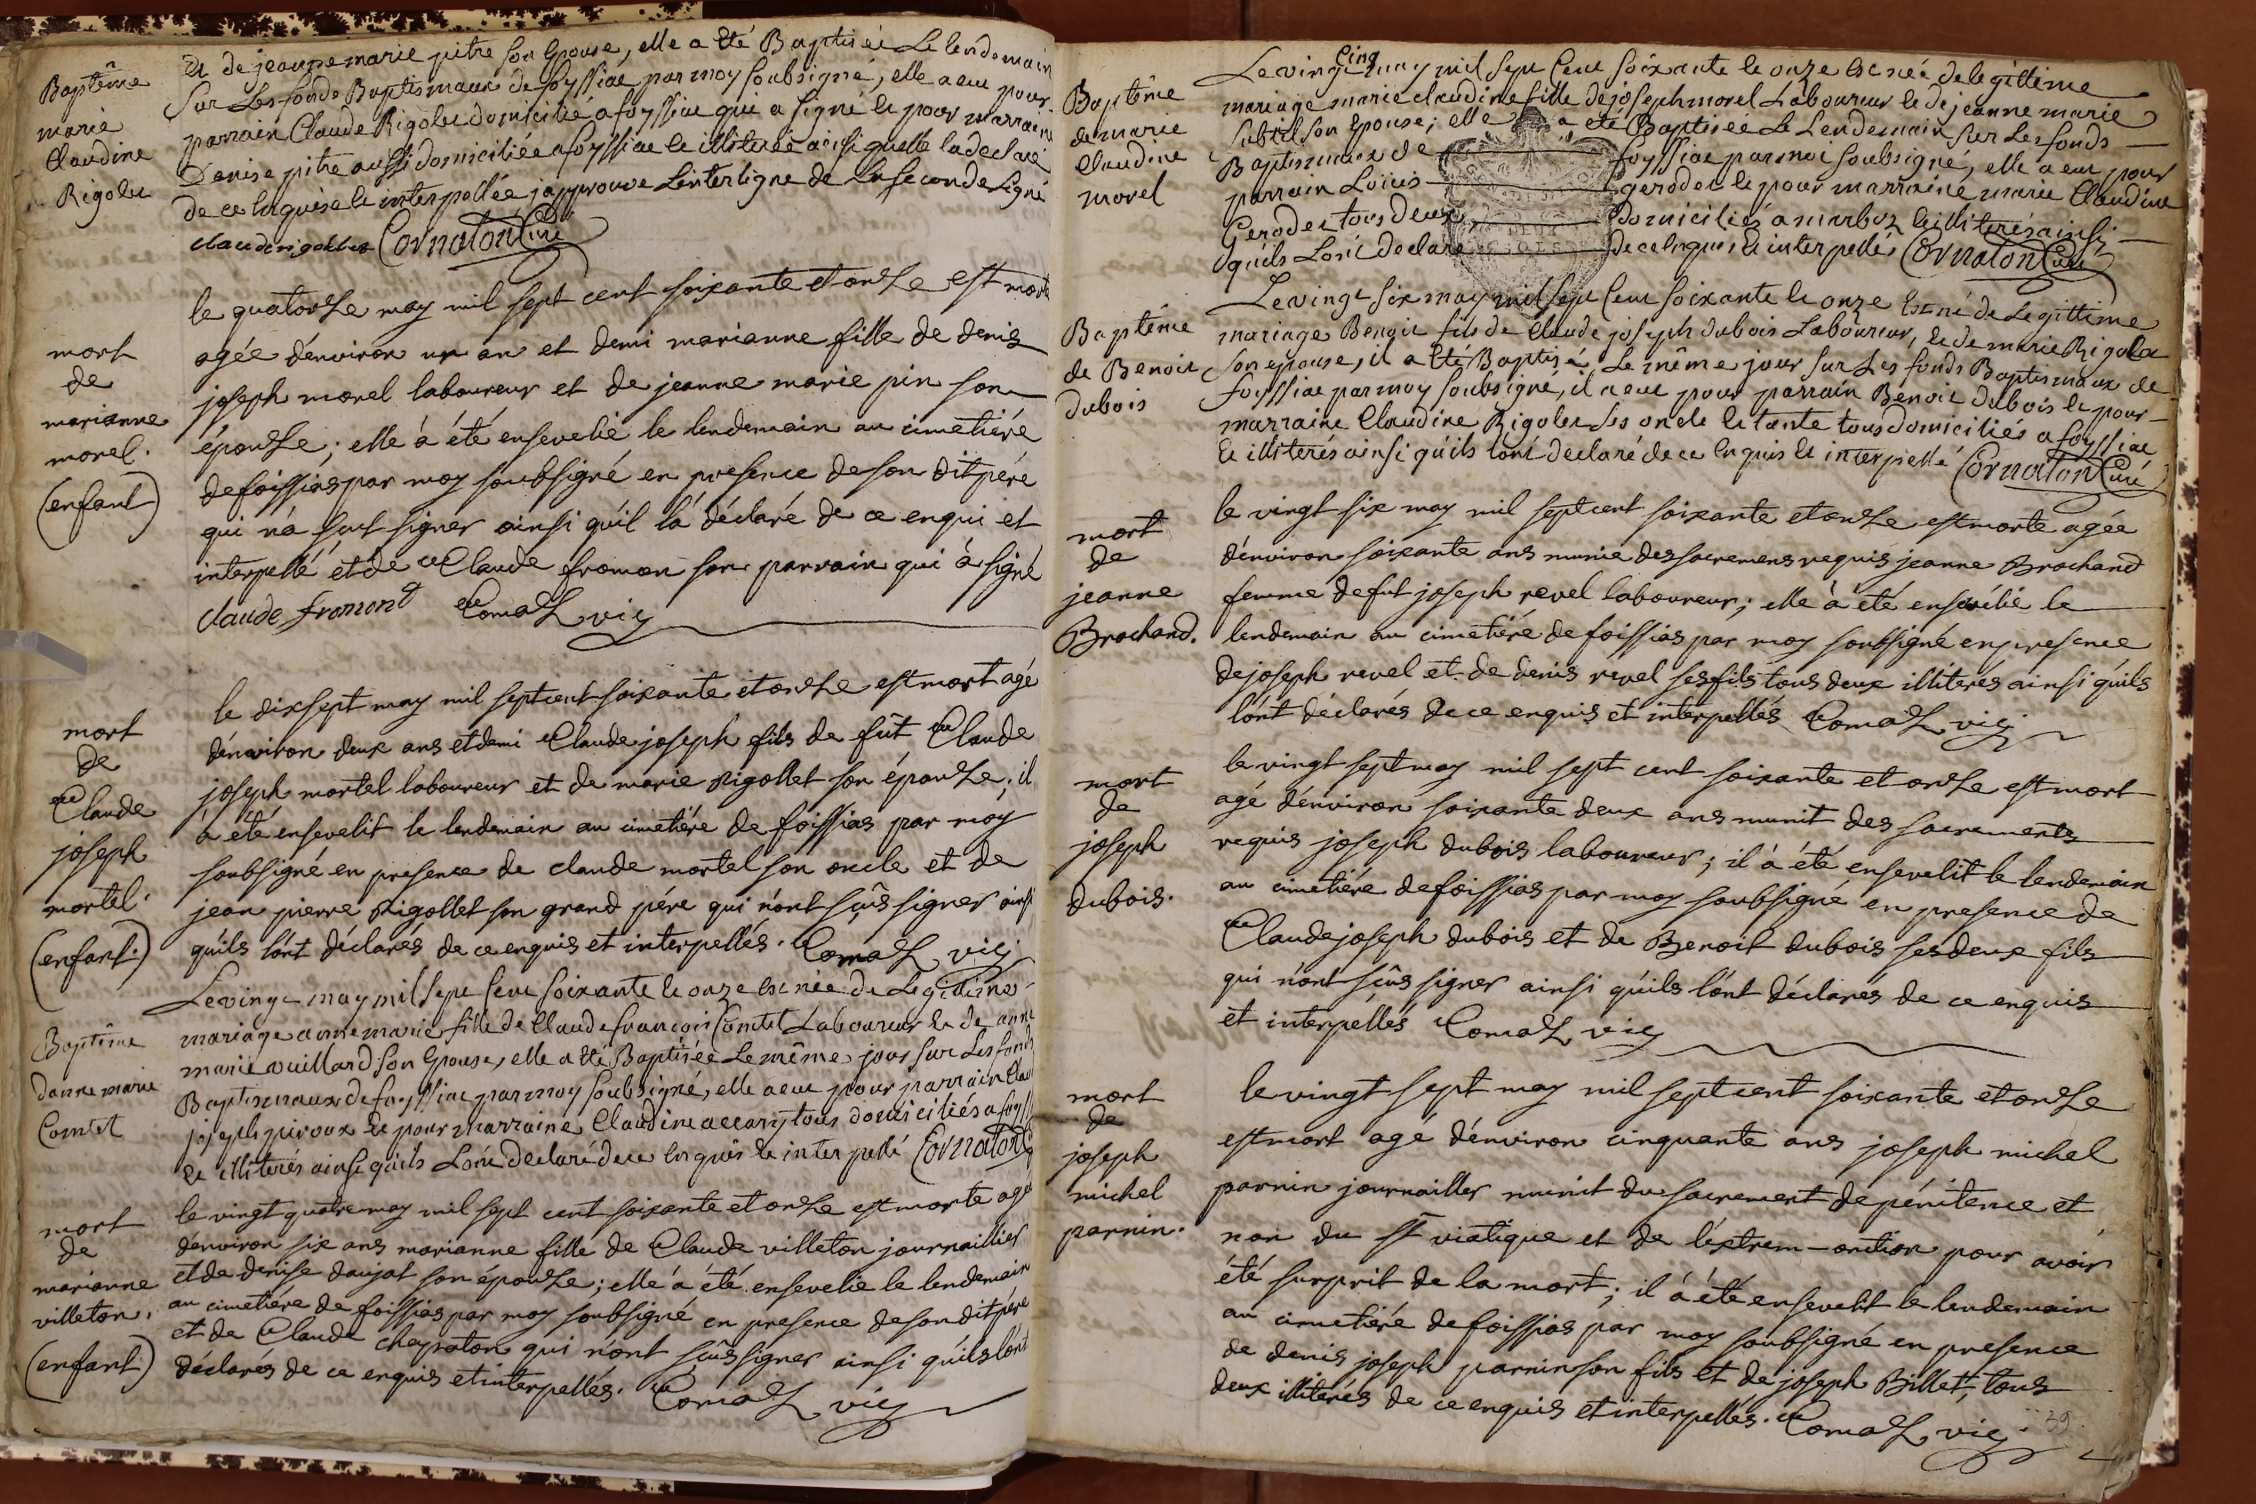 Baptême
marie
Claudine
Rigolet
et de jeanne marie pitre son Epouse, elle a Eté Baptisée Le lendemain
Sur Les fonds Baptismaux de foyssiac par moy Soubsigné, elle a eu pour
parrain Claude Rigolet domicilié a foyssiac qui a signé et pour marraine
Denise pitre aussi domiciliée a foyssiac et illiterée ainsi quelle la declaré
de ce Enquise et interpellée japprouve Linterligne de La seconde Ligne
claude rigollet Cornaton Curé
mort
de
marianne
morel.
(enfant)
le quatorze may mil sept cent soixante et onze est morte
agée d'environ un an et demi marianne fille de denis
joseph morel laboureur et de jeanne marie pin son
épouze; elle à été ensevelie le lendemain au cimetiére
de foissias par moy soubsigné en presence de son dit pére
qui n'a sçut signer ainsi qu'il l'a déclaré de ce enqui et
interpellé et de Claude fromon son parrain qui à signé
claude fromont Comaz vic
mort
de
Claude
joseph
mortel.
(enfant.)
le dixsept may mil sept cent soixante et onze est mort agé
d'environ deux ans et demi Claude joseph fils de fût Claude
joseph mortel laboureur et de marie Rigollet son épouze; il
à été ensevelit le lendemain au cimetiére de foissias par moy
soubsigné en presence de claude mortel son oncle et de
jean pierre Rigollet son grand pére qui n'ont sçûs signer ainsi
qu'ils l'ont déclarés de ce enquis et interpellés. Comaz vic
Baptême
danne marie
Comtet
Le vingt may mil sept Cent soixante et onze est née de Legittime
mariage anne marie fille de Claude françois Comtet Laboureur et de anne
marie vuillard son Epouse, elle a Eté Baptisée Le même jour sur Les fonds
Baptismaux de foyssiac par moy soubsigné, elle a eu pour parrain Claude
joseph piroux et pour marraine Claudine accary tous domiciliés a foyss
et illiterés ainsi quils Lont declaré de ce Enquis et interpellé Cornaton C
mort
de
marianne
villeton.
(enfant)
le vingt quatre may mil sept cent soixante et onze est morte agé
d'environ six ans marianne fille de Claude villeton journaillier
et de denise daujat son épouze; elle à été ensevelie le lendemain
au cimetiére de foissias par moy soubsigné en presence de son dit pére
et de Claude chapaton qui n'ont sçûs signer ainsi qu'ils l'ont
déclarés de ce enquis et interpellés. Comaz vic
Baptême
de marie
Claudine
morel
Cinq
Le vingt may mil sept Cent soixante et onze Est née de legittime
mariage marie claudine fille de joseph morel Laboureur et de jeanne marie
Subtil son Epouse; elle a été Baptisée Le Lendemain sur Les fonds
Baptismaux de foyssiac par moi soubsigné, elle a eu pour
parrain Loüis gerodet et pour marraine marie Claudine
Gerodet tous deux domiciliés a marboz et illiterés ainsi
quils Lont declaré de ce Enquis et interpellés Cornaton Curé
Baptême
de Benoit
dubois
Le vingt six may mil sept Cent soixante et onze Est né de Legittime
mariage Benoit fils de Claude joseph dubois Laboureur, et de marie Rigolet
son epouse, il a Eté Baptisé Le même jour sur Les fonds Baptismaux de
foyssiac par moy soubsigné, il a eu pour parrain Benoit dubois et pour
marraine Claudine Rigolet ses oncle et tante tous domiciliés a foyssiac
et illiterés ainsi quils Lont declaré de ce Enquis et interpellé Cornaton Curé
mort
de
jeanne
Brochand.
le vingt six may mil sept cent soixante et onze est morte agée
d'environ soixante ans munie des sacremens requis jeanne Brochand
femme de fut joseph revel laboureur; elle à été ensevélie le
lendemain au cimetiére de foissias par moy soubsigné en presence
de joseph revel et de denis revel ses fils tous deux illiterés ainsi qu'ils
l'ont déclarés de ce enquis et interpellés Comaz vic
mort
de
joseph
dubois.
le vingt sept may mil sept cent soixante et onze est mort
agé d'environ soixante deux ans munit des sacrements
requis joseph dubois laboureur; il à été ensevelit le lendemain
au cimetiére de foissias par moy soubsigné en presence de
Claude joseph dubois et de Benoit dubois ses deux fils
qui n'ont sçûs signer ainsi qu'ils l'ont déclarés de ce enquis
et interpellés Comaz vic
mort
de
joseph
michel
parnin.
le vingt sept may mil sept cent soixante et onze
est mort agé d'environ cinquante ans joseph michel
parnin journailler munit du sacrement de pénitence et
non du st viatique et de l'extrem-onction pour avoir
été surprit de la mort; il à été ensevelit le lendemain
au cimetiére de foissias par moy soubsigné en presence
de denis joseph parnin son fils et de joseph Billet, tous
deux illiterés de ce enquis et interpellés. Comaz vic.
39